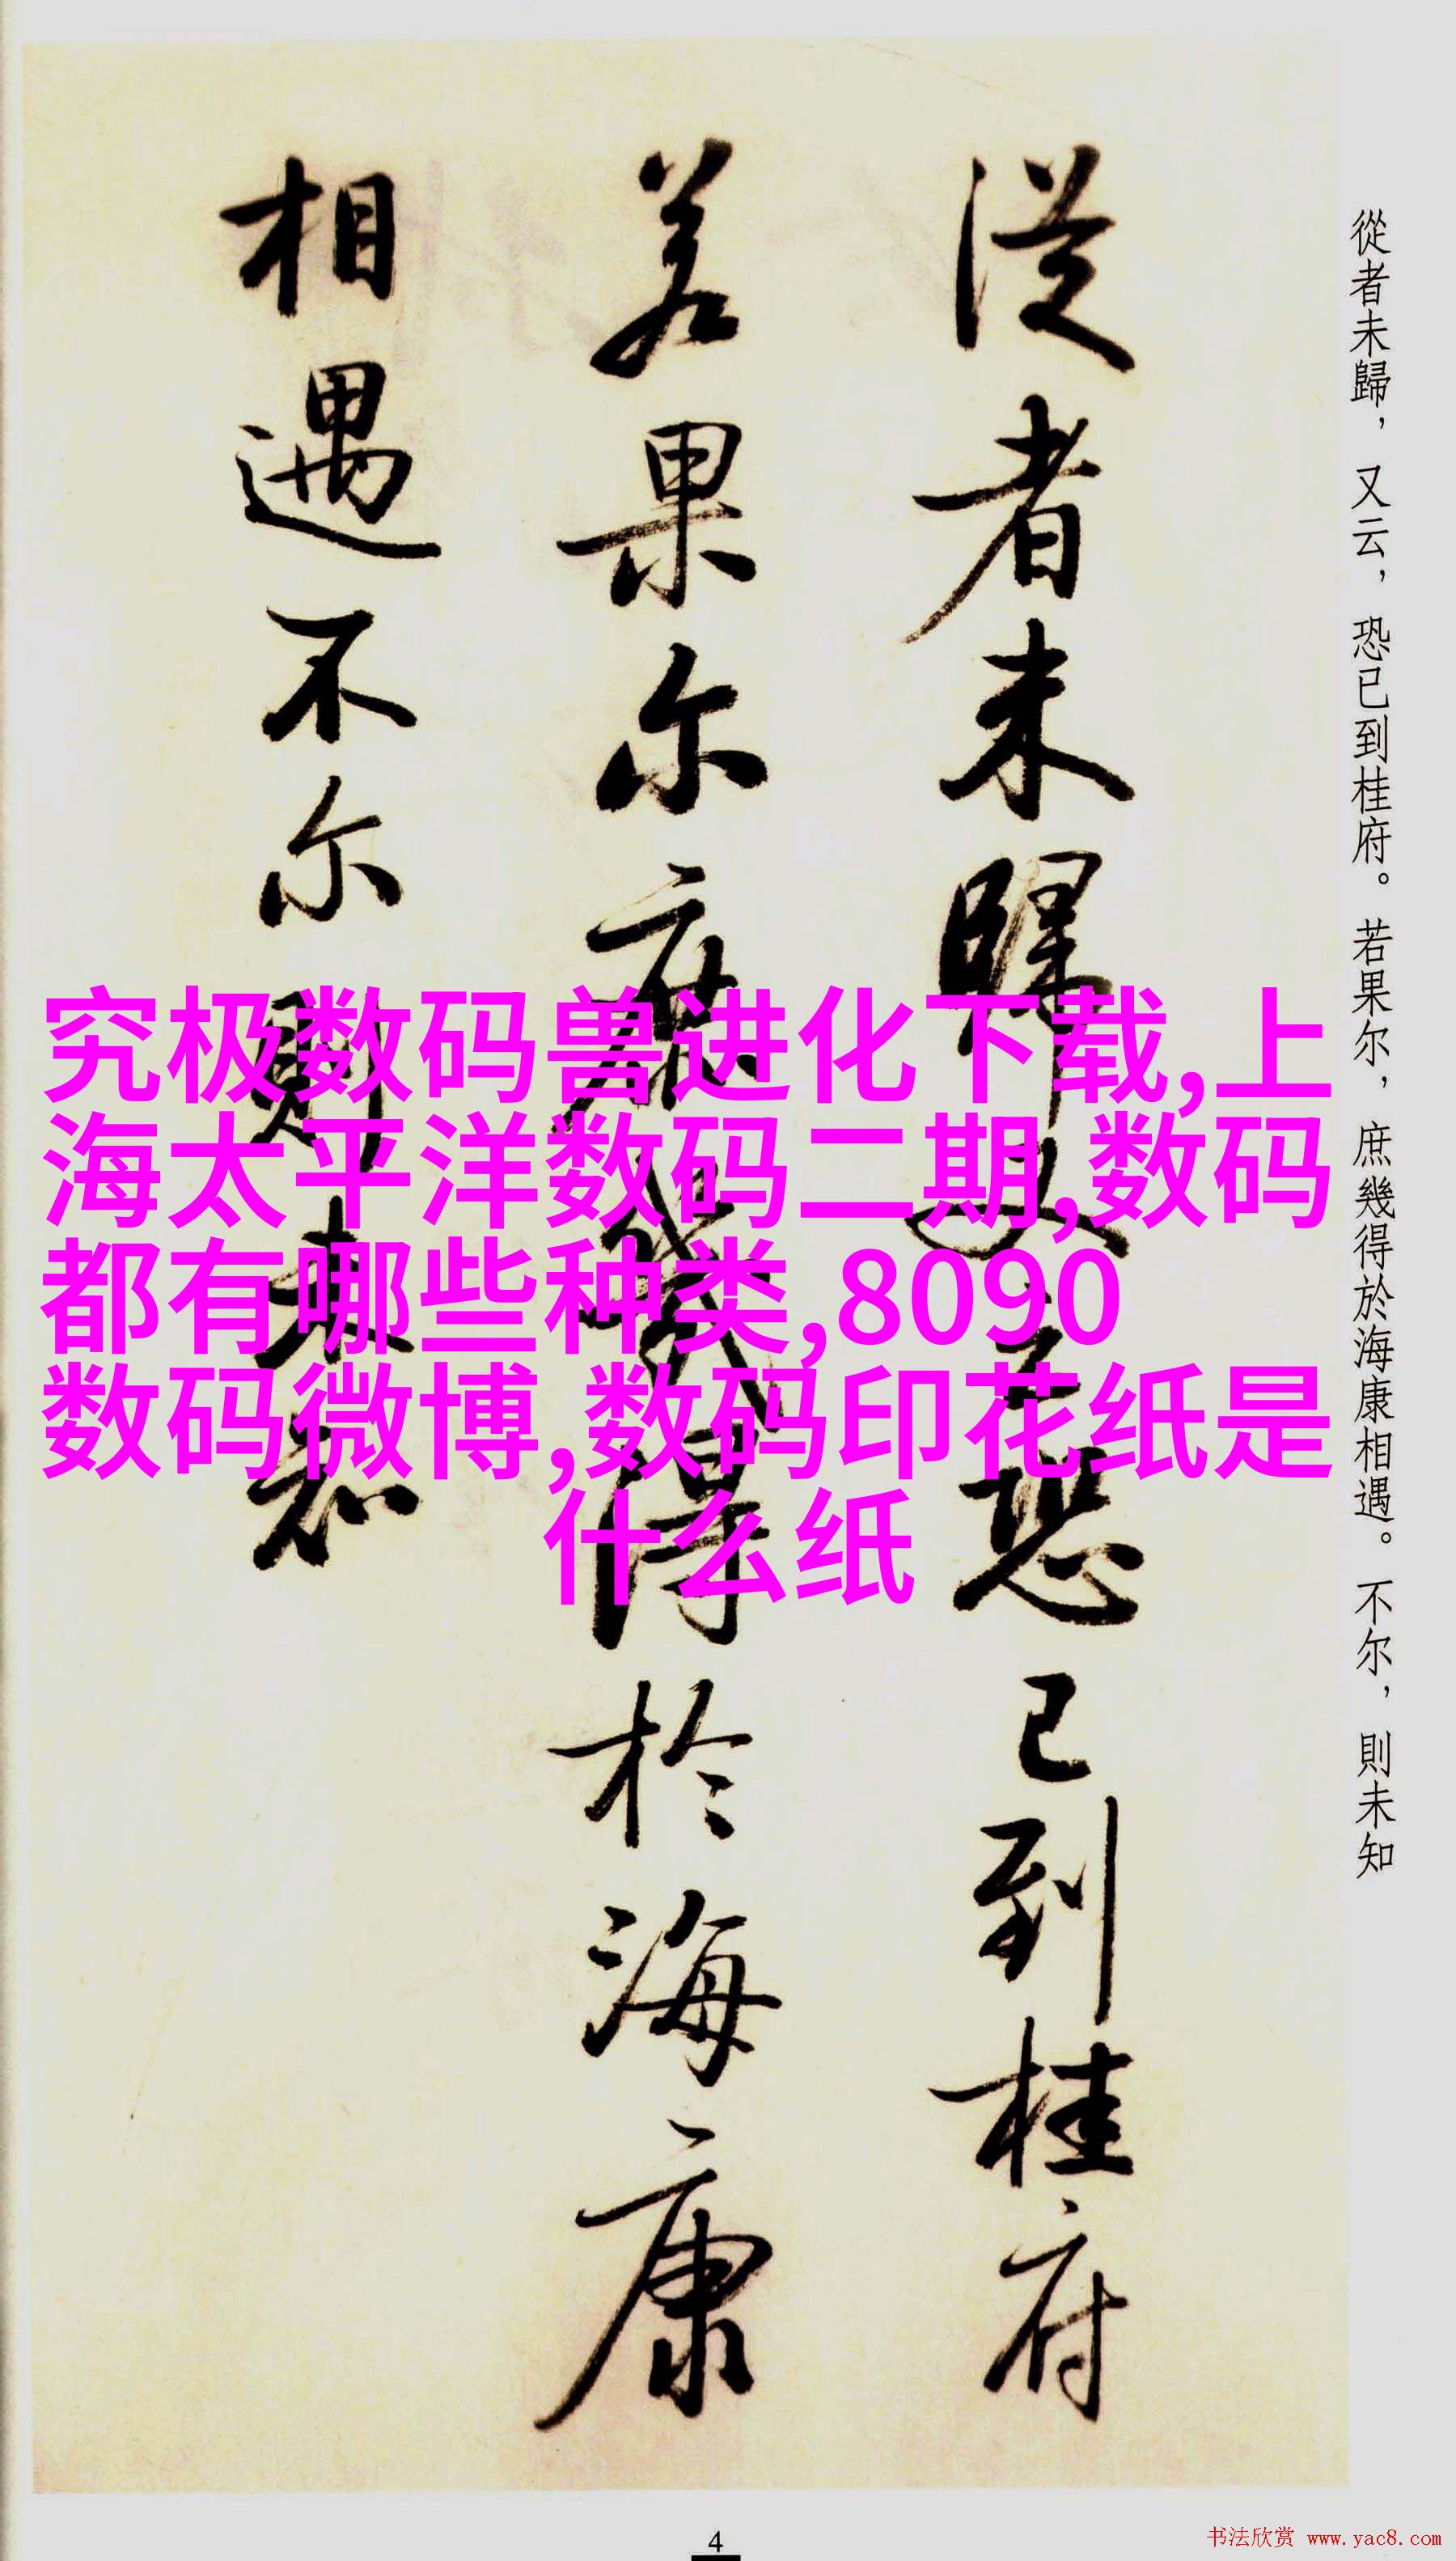 從者未歸，又云，恐已到桂府。若果尔，庶幾得於海康相遇。不尔，則未知
従者未歸又云恐已到桂府
若果尔庶幾得於海康
相遇不尔則未知
究极数码兽进化下载,上
海太平洋数码二期,数码
都有哪些种类,8090
数码微博,数码印花纸是
什么纸
4
书法欣赏 www.yac8.com